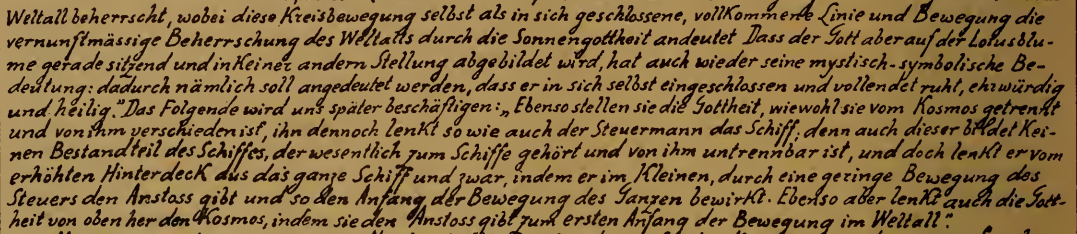 Weltall beherrscht, wobei diese Kreisbewegung selbst als in sich geschlossene, vollkommene Linie und Bewegung die
vernunftmässige Beherrschung des Weltalls durch die Sonnengottheit andeutet Dass der Gott aber auf der Lotusblu-
me gerade sitzend und in keiner andern Stellung abgebildet wird, hat auch wieder seine mystisch-symbolische Be-
deutung: dadurch nämlich soll angedeutet werden, dass er in sich selbst eingeschlossen und vollendet ruht, ehrwürdig
und heilig." Das Folgende wird uns später beschäftigen: „Ebenso stellen sie die Gottheit, wiewohl sie vom Kosmos getrennt
und von ihm verschieden ist, ihn dennoch lenkt so wie auch der Steuermann das Schiff; denn auch dieser bildet kei-
nen Bestandteil des Schiffes, der wesentlich zum Schiffe gehört und von ihm untrennbar ist, und doch lenkt er vom
erhöhten Hinterdeck aus das ganze Schiff und zwar, indem er im Kleinen, durch eine geringe Bewegung des
Steuers den Anstoss gibt und so den Anfang der Bewegung des Ganzen bewirkt. Ebenso aber lenkt auch die Gott-
heit von oben her den Kosmos, indem sie den Anstoss gibt zum ersten Anfang der Bewegung im Weltall".